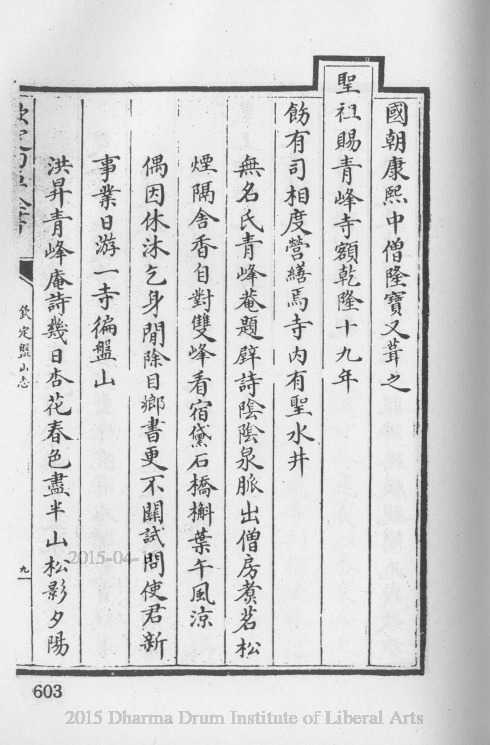 國朝康熙中僧隆寶又葺之
聖祖賜青峰寺額乾隆十九年
飭有司相度營繕焉寺內有聖水井
無名氏青峰菴題壁詩陰陰泉脈出僧房煮茗松
煙隔舍香自對雙峰看宿黛石橋槲葉午風涼
偶因休沐乞身閒除目鄉書更不關試問使君新
事業日游一寺徧盤山
洪昇青峰庵詩幾日杏花春色盡半山松影夕陽
欽定四庫全書
欽定盤山志
九
2015-04-1
603
2015 Dharma Drum Institute of Liberal Arts